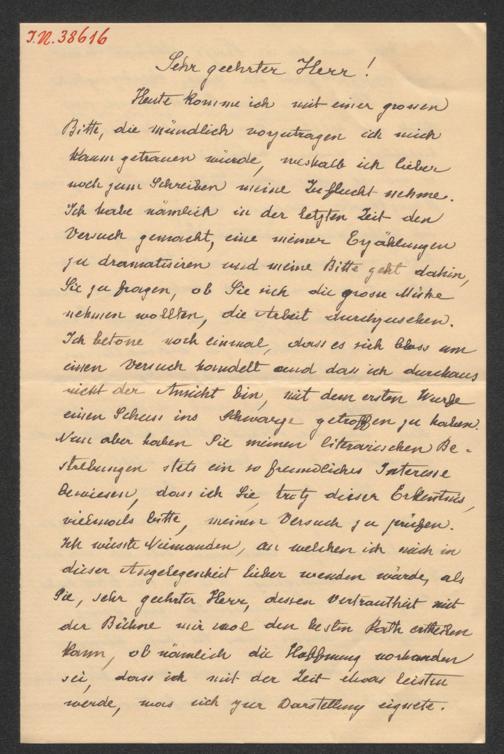 J.N. 38616
Sehr geehrter Herr!
Heute komme ich mit einer grossen
Bitte, die mündlich vorzutragen ich mich
kaum getrauen würde, weshalb ich lieber
noch zum Schreiben meine Zuflucht nehme.
Ich habe nämlich in der letzten Zeit den
Versuch gemacht, eine meiner Erzählungen
zu dramatisiren und meine Bitte geht dahin,
Sie zu fragen, ob Sie sich die grosse Mühe
nehmen wollten, die Arbeit durchzusehen.
Ich betone noch einmal, dass es sich bloss um
einen Versuch handelt und dass ich durchaus
nicht der Ansicht bin, mit dem ersten Wurfe
einen Schuss ins Schwarze getroffen zu haben.
Nun aber haben Sie meinen literarischen Be-
strebungen stets ein so freundliches Interesse
bewiesen, dass ich Sie, trotz dieser Erkentnis,
vielmals bitte, meinen Versuch zu prüfen.
Ich wüsste Niemanden, an welchen ich mich in
dieser Angelegenheit lieber wenden würde, als
Sie, sehr geehrter Herr, dessen Vertrautheit mit
der Bühne mir wol den besten Rath ertheilen
kann, ob nämlich die Hoffnung vorhanden
sei, dass ich mit der Zeit etwas leisten
werde, was sich zur Darstellung eignete.